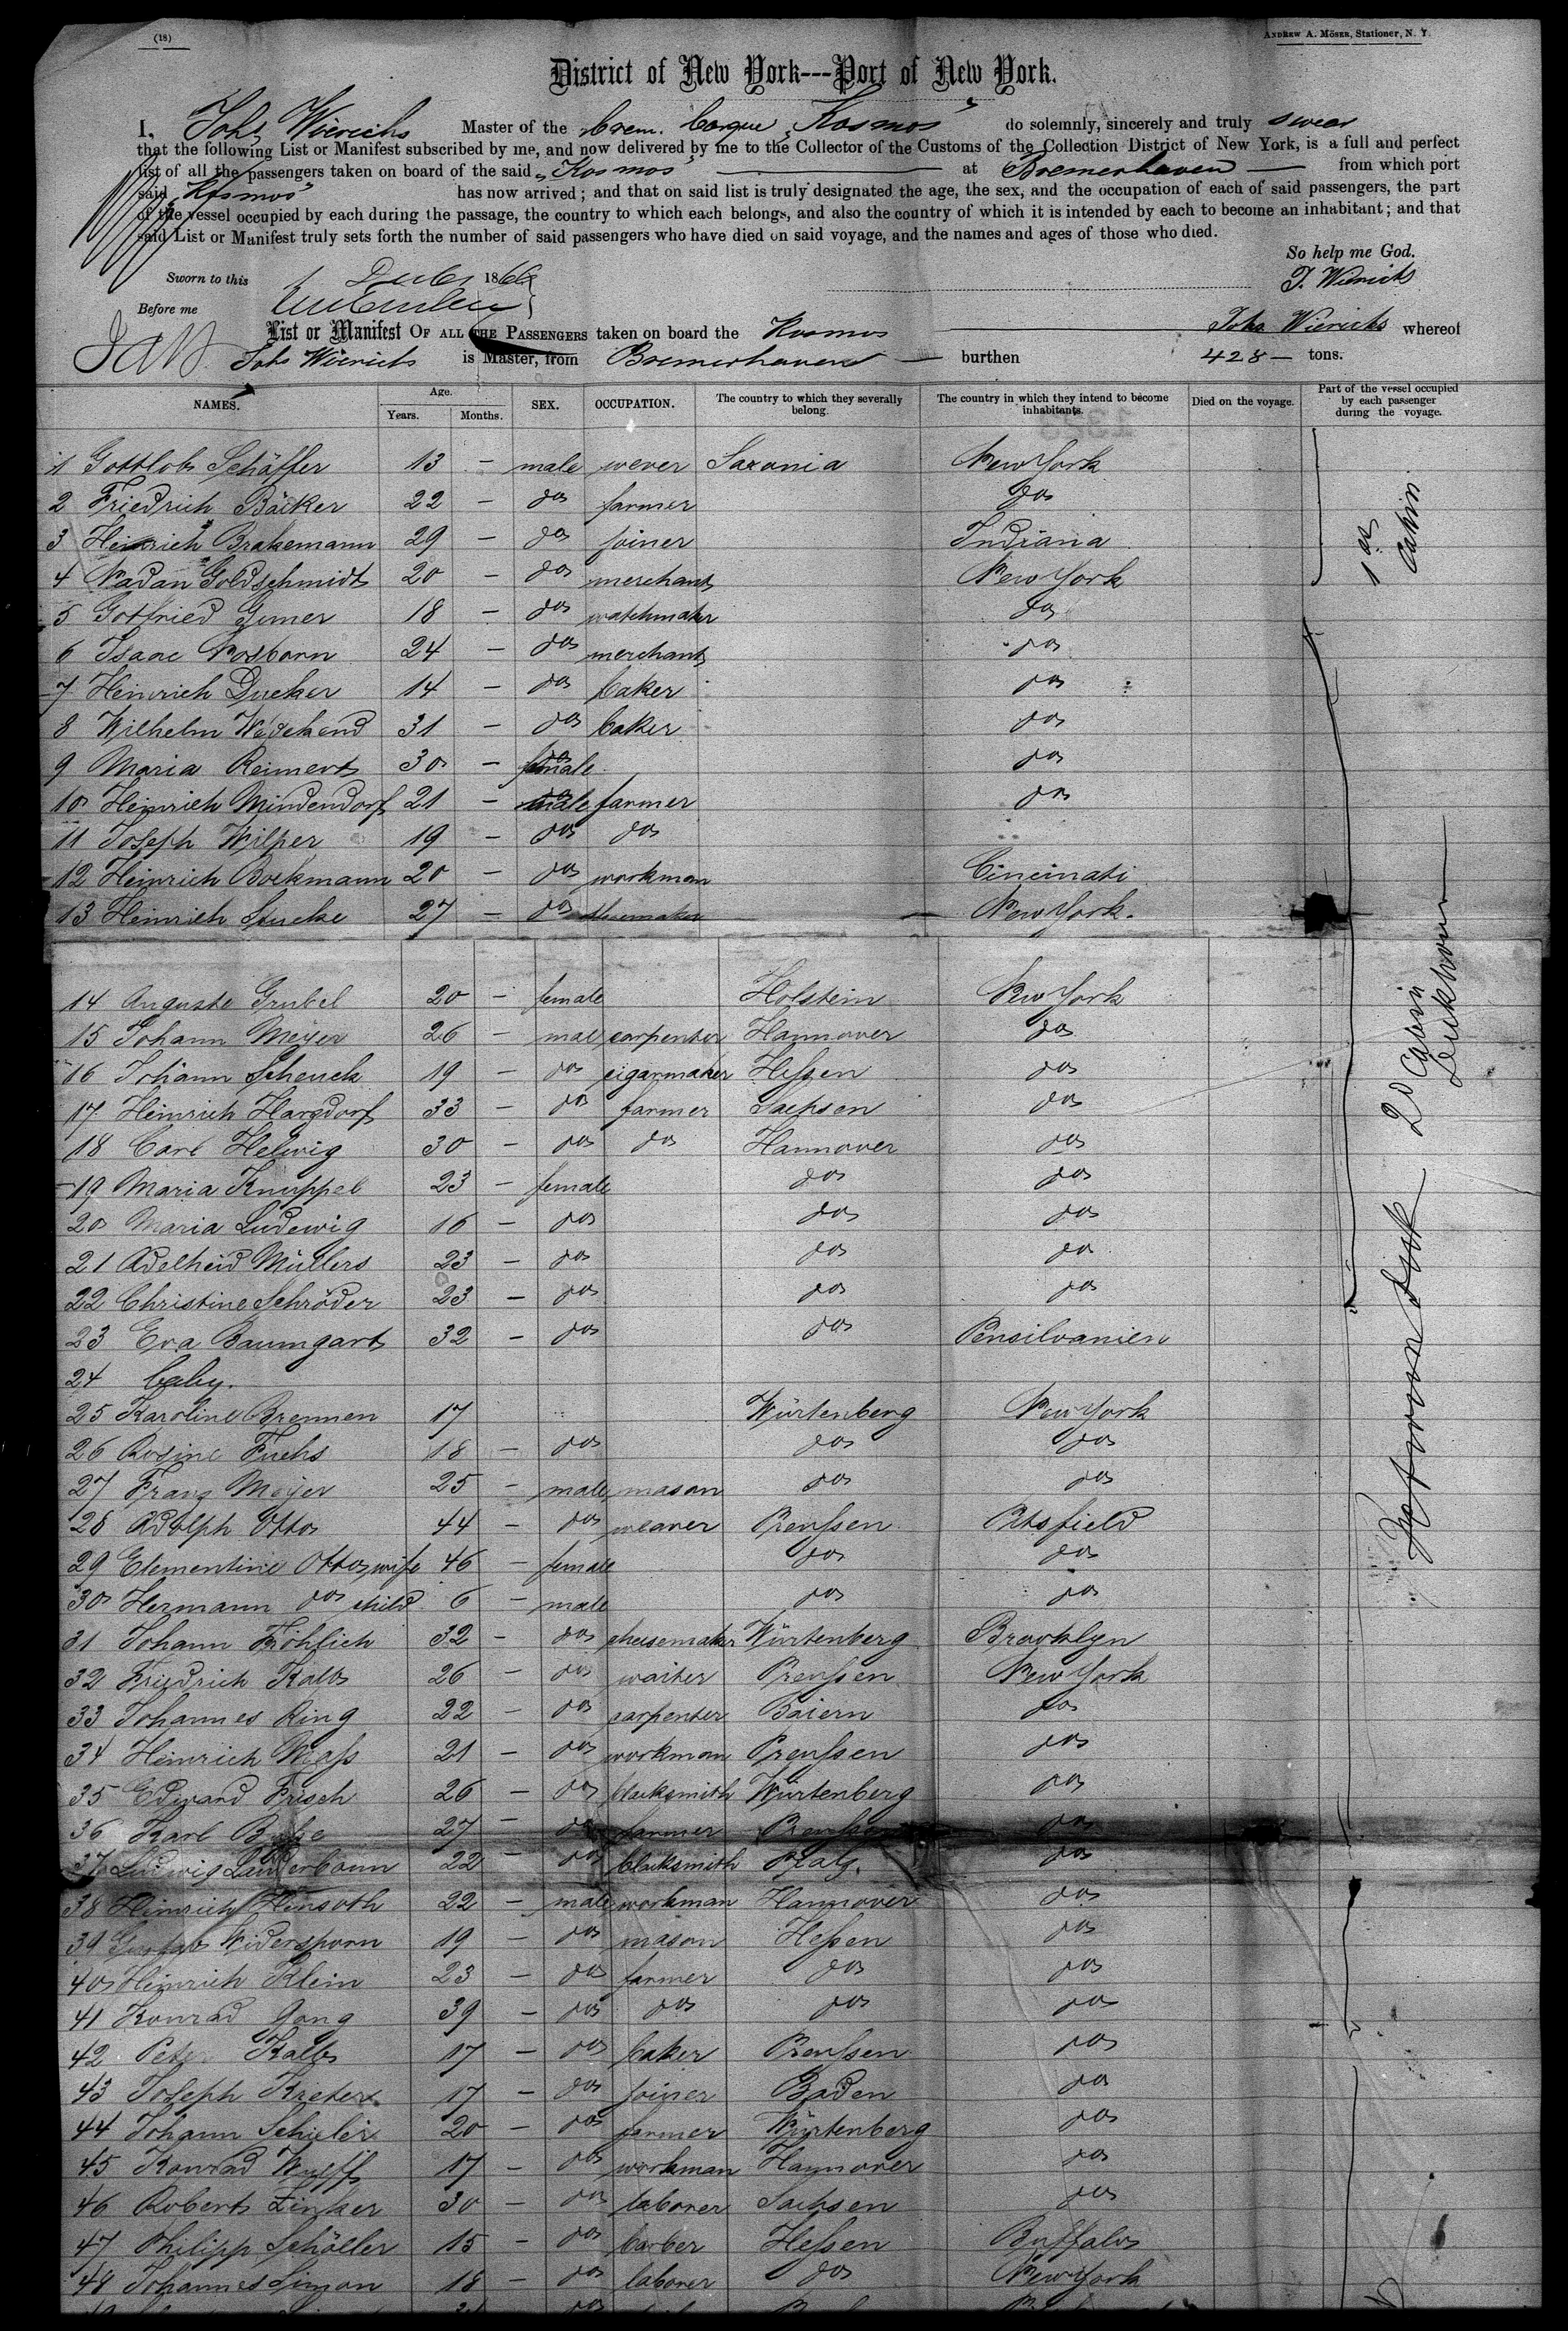 (18)
ANDREW A. MÖSER, Stationer, N. Y.
District of New York---Port of New York.
I, Johs Wierichs Master of the brem. barque „Kosmos" do solemnly, sincerely and truly swear
that the following List or Manifest subscribed by me, and now delivered by me to the Collector of the Customs of the Collection District of New York, is a full and perfect
list of all the passengers taken on board of the said „Kosmos" at Bremerhaven from which port
said „Kosmos" has now arrived; and that on said list is truly designated the age, the sex, and the occupation of each of said passengers, the part
of the vessel occupied by each during the passage, the country to which each belongs, and also the country of which it is intended by each to become an inhabitant; and that
said List or Manifest truly sets forth the number of said passengers who have died on said voyage, and the names and ages of those who died.
So help me God.
Sworn to this 186
J. Wierichs
Before me
List or Manifest OF ALL THE PASSENGERS taken on board the Kosmos Johs Wierichs whereof
Johs Wierichs is Master, from Bremerhaven burthen 428 tons.
NAMES. Age. Years. Months. SEX. OCCUPATION. The country to which they severally belong. The country in which they intend to become inhabitants. Died on the voyage. Part of the vessel occupied by each passenger during the voyage.
1 Gottlob Schäffer 13 - male wever Saxonia New York
2 Friedrich Bäcker 22 - do farmer do
3 Heinrich Brakemann 29 - do joiner Indiana
4 Nadan Goldschmidt 20 - do merchant New York
5 Gotfried Gumer 18 - do watchmaker do
6 Isaac Rosborn 24 - do merchant do
7 Heinrich Ducker 14 - do baker do
8 Wilhelm Wedekend 31 - do baker do
9 Maria Reimers 30 - female do
10 Heinrich Mindendorf 21 - male farmer do
11 Joseph Wilper 19 - do do
12 Heinrich Bockmann 20 - do workman Cincinati
13 Heinrich Lucke 27 - do shoemaker New York.
1st Cabin
14 Auguste Grubel 20 - female Holstein New York
15 Johann Meyer 26 - male carpenter Hannover do
16 Johann Schenck 19 - do cigarmaker Heßen do
17 Heinrich Hargdorf 33 - do farmer Sachsen do
18 Carl Helwig 30 - do do Hannover do
19 Maria Knuppel 23 - female do do
20 Maria Ludewig 16 - do do do
21 Adelheid Müllers 23 - do do do
22 Christine Schröder 23 - do do do
23 Eva Baumgart 32 - do do Pensilvanien
24 baby.
25 Karoline Brennen 17 Würtenberg New York
26 Rosine Fuchs 18 - do do do
27 Franz Meyer 25 - male mason do do
28 Adolph Otto 44 - do weaver Preußen Pitsfield
29 Clementine Otto, wife 46 - female do do
30 Hermann do child 6 - male do do
31 Johann Fröhlich 32 - do cheesemaker Würtenberg Brooklyn
32 Friedrich Kalb 26 - do waiter Preußen New York
33 Johannes Ring 22 - do carpenter Baiern do
34 Heinrich Waß 21 - do workman Preußen do
35 Edward Frisch 26 - do blacksmith Würtenberg do
36 Karl 27 - do farmer Preußen do
37 Ludwig Lauderbonn 22 do blacksmith Pfalz. do
38 Heinrich Hensoth 22 - male workman Hannover do
39 Gustav Widersporn 19 - do mason Heßen do
40 Heinrich Klein 23 - do farmer do do
41 Konrad Gang 39 - do do do do
42 Peter Kalb 17 - do baker Preußen do
43 Joseph Krieter 17 - do joiner Baden do
44 Johann Schieler 20 - do farmer Würtenberg do
45 Konrad Wulff 17 - do workman Hannover do
46 Robert Zinker 30 - do laborer Sachsen do
47 Philipp Schöller 15 - do barber Heßen Buffalo
48 Johannes Simon 18 - do laborer do New York
2d Cabin